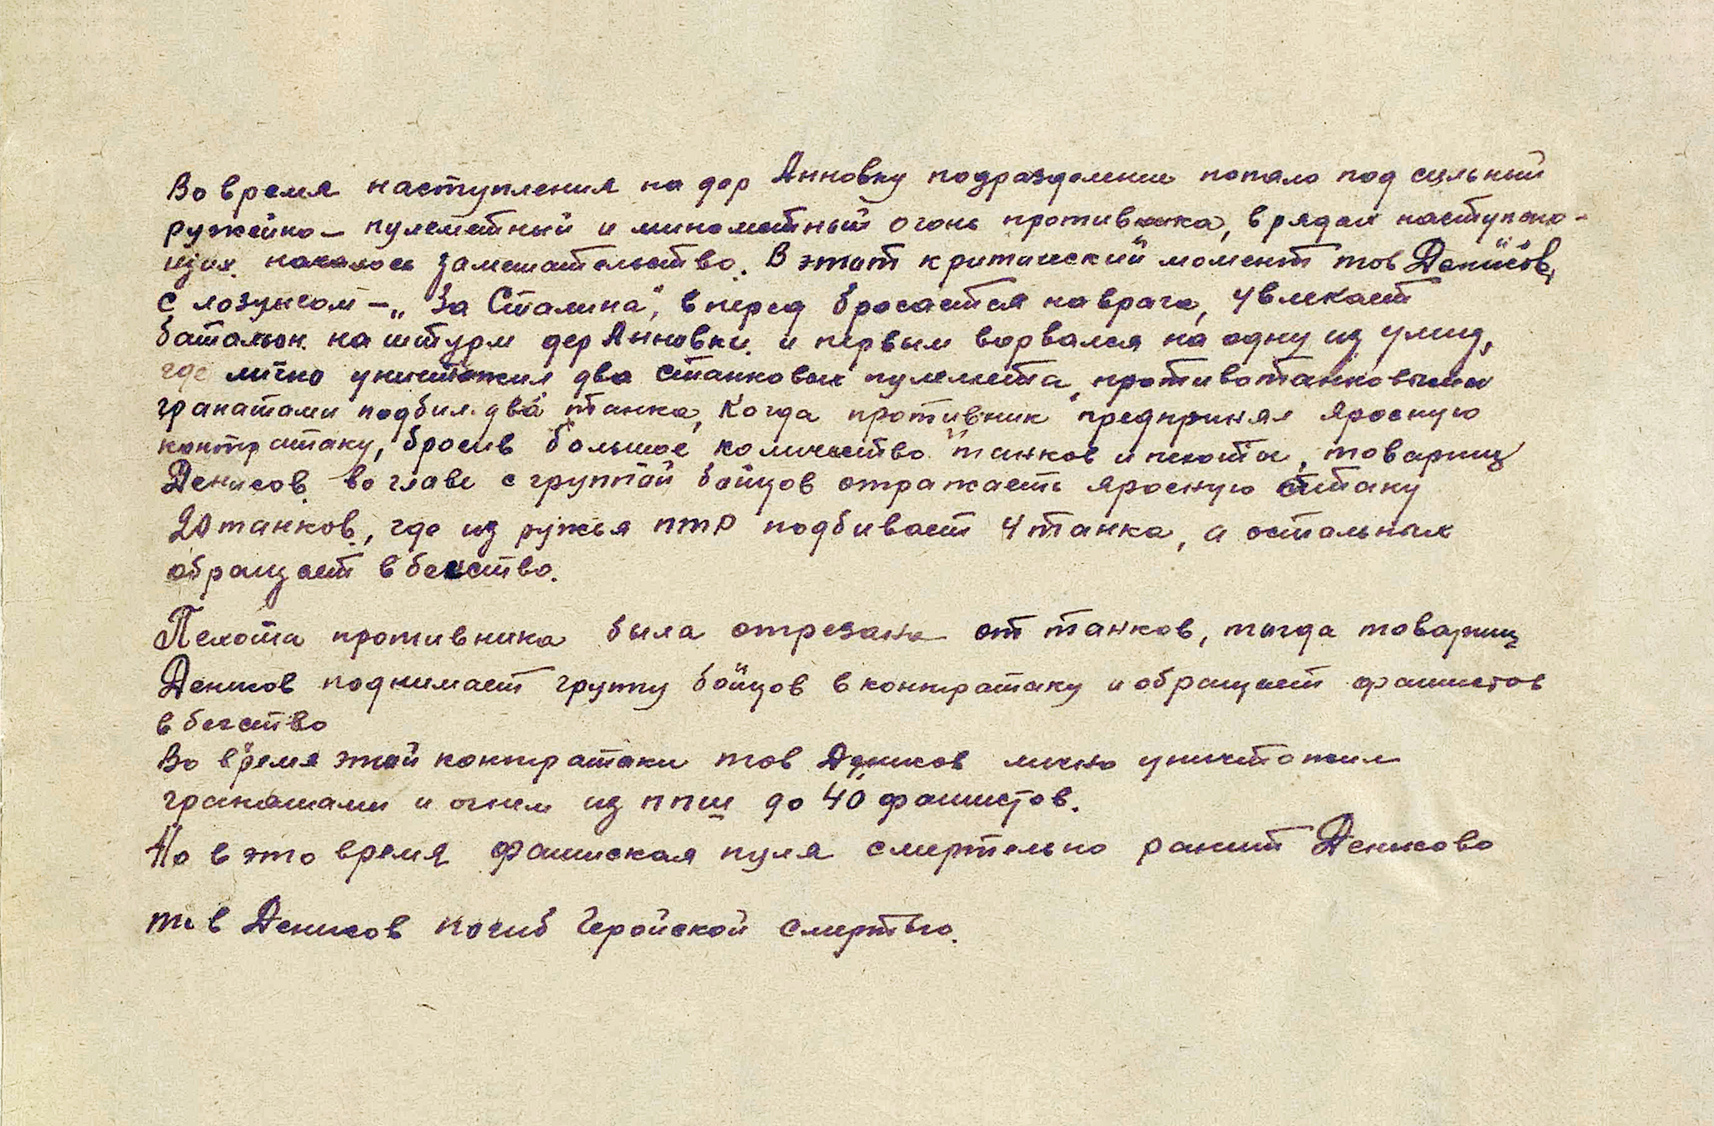 Во время наступления на дер Анновку подразделение попало под сильный
ружейно – пулеметный и минометный огонь противника, в рядах наступаю-
щих началось замешательство. В этот критический момент тов Денисов,
с лозунгом – „За Сталина", вперед бросается на врага, увлекает
батальон на штурм дер Анновки и первым ворвался на одну из улиц,
где лично уничтожил два станковых пулемета, противотанковыми
гранатами подбил два танка, Когда противник предпринял яросную
контратаку, бросив большое количество танков и пехоты, товарищ
Денисов во главе с группой бойцов отражает яросную атаку
20 танков, где из ружья ПТР подбивает 4 танка, а остальных
обращает в бегство.
Пехота противника была отрезана от танков, тогда товарищ
Денисов поднимает группу бойцов в контратаку и обращает фашистов
в бегство
Во время этой контратаки тов Денисов лично уничтожил
гранатами и огнем из ППШ до 40 фашистов.
Но в это время фашиская пуля смертельно ранит Денисова
тов Денисов погиб Геройской смертью.